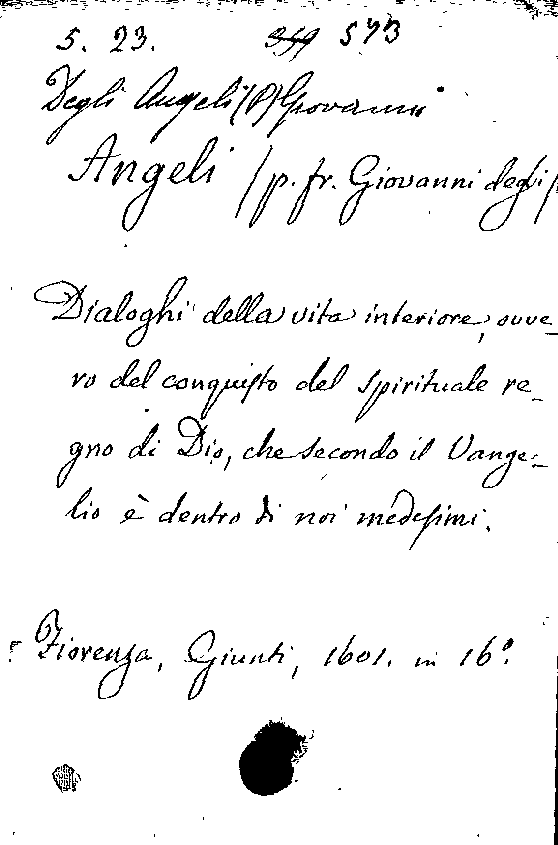 5. 23. 573
Degli Angeli (P) Giovanni
Angeli (p. fr. Giovanni degli)
Dialoghi della vita interiore, ovve_
ro del conquisto del spirituale re_
gno di Dio, che secondo il Vange_
lio è dentro di noi medesimi.
Fiorenza, Giunti, 1601. in 16°.